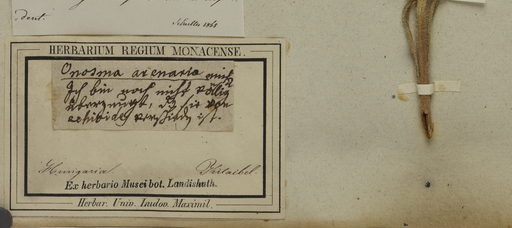 dent.
Schultes 1868
HERBARIUM REGIUM MONACENSE.
Onosma arenaria mihi
Ich bin noch nicht völlig
überzeugt, daß sie von
echioides verschieden ist.
Hungaria Kitaibel.
Ex herbario Musei bot. Landishuth.
Herbar. Univ. Ludov. Maximil.